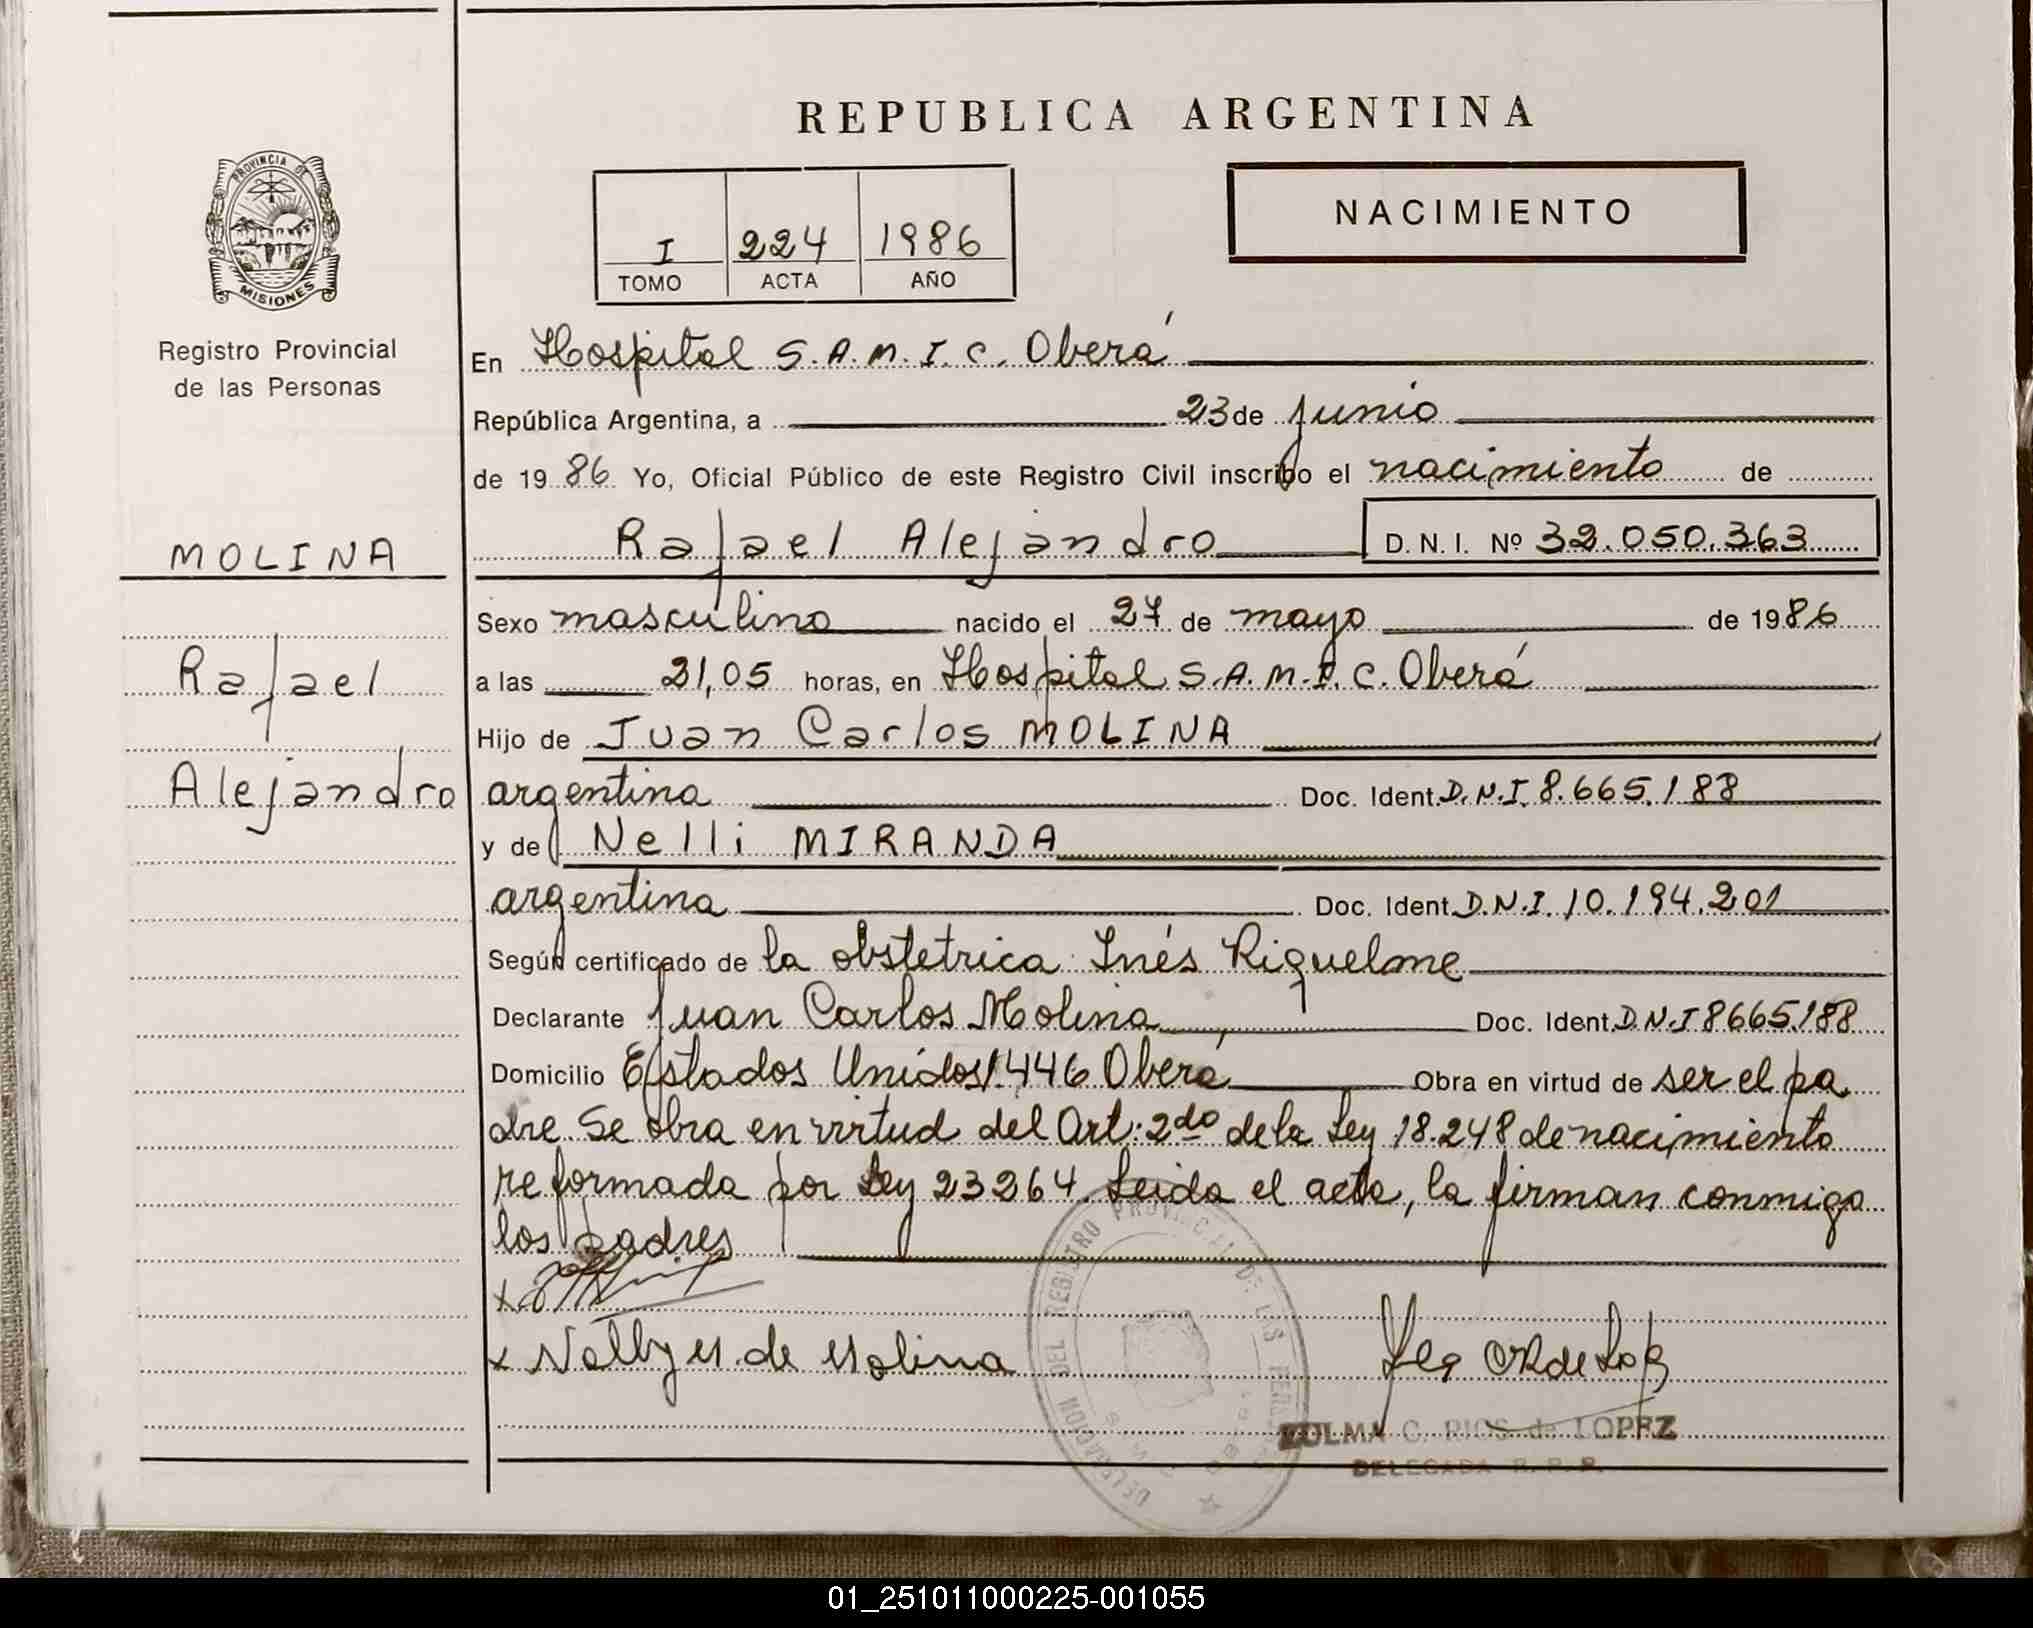 REPUBLICA ARGENTINA
PROVINCIA DE
MISIONES
Registro Provincial
de las Personas
I 224 1986
TOMO ACTA AÑO
NACIMIENTO
En Hospital S.A.M.I.C. Oberá
República Argentina, a 23 de junio
de 1986 Yo, Oficial Público de este Registro Civil inscribo el nacimiento de
Rafael Alejandro D.N.I. Nº 32.050.363
MOLINA
Rafael
Alejandro
Sexo masculino nacido el 27 de mayo de 1986
a las 21,05 horas, en Hospital S.A.M.I.C. Oberá
Hijo de Juan Carlos MOLINA
argentina Doc. Ident. D.N.I. 8.665.188
y de Nelli MIRANDA
argentina Doc. Ident. D.N.I. 10.194.201
Según certificado de la obstetrica Inés Riquelme
Declarante Juan Carlos Molina Doc. Ident. D.N.I 8665.188
Domicilio Estados Unidos 1446 Oberá Obra en virtud de ser el pa
dre. Se obra en virtud del Art. 2do de la Ley 18.248 de nacimiento
reformada por Ley 23264. Leida el acta, la firman conmigo
los padres
de Molina
DELEGACION DEL REGISTRO PROVINCIAL DE LAS PERSONAS
ZULMA C. RIOS de LOPEZ
DELEGADA R. P. P.
01_251011000225-001055